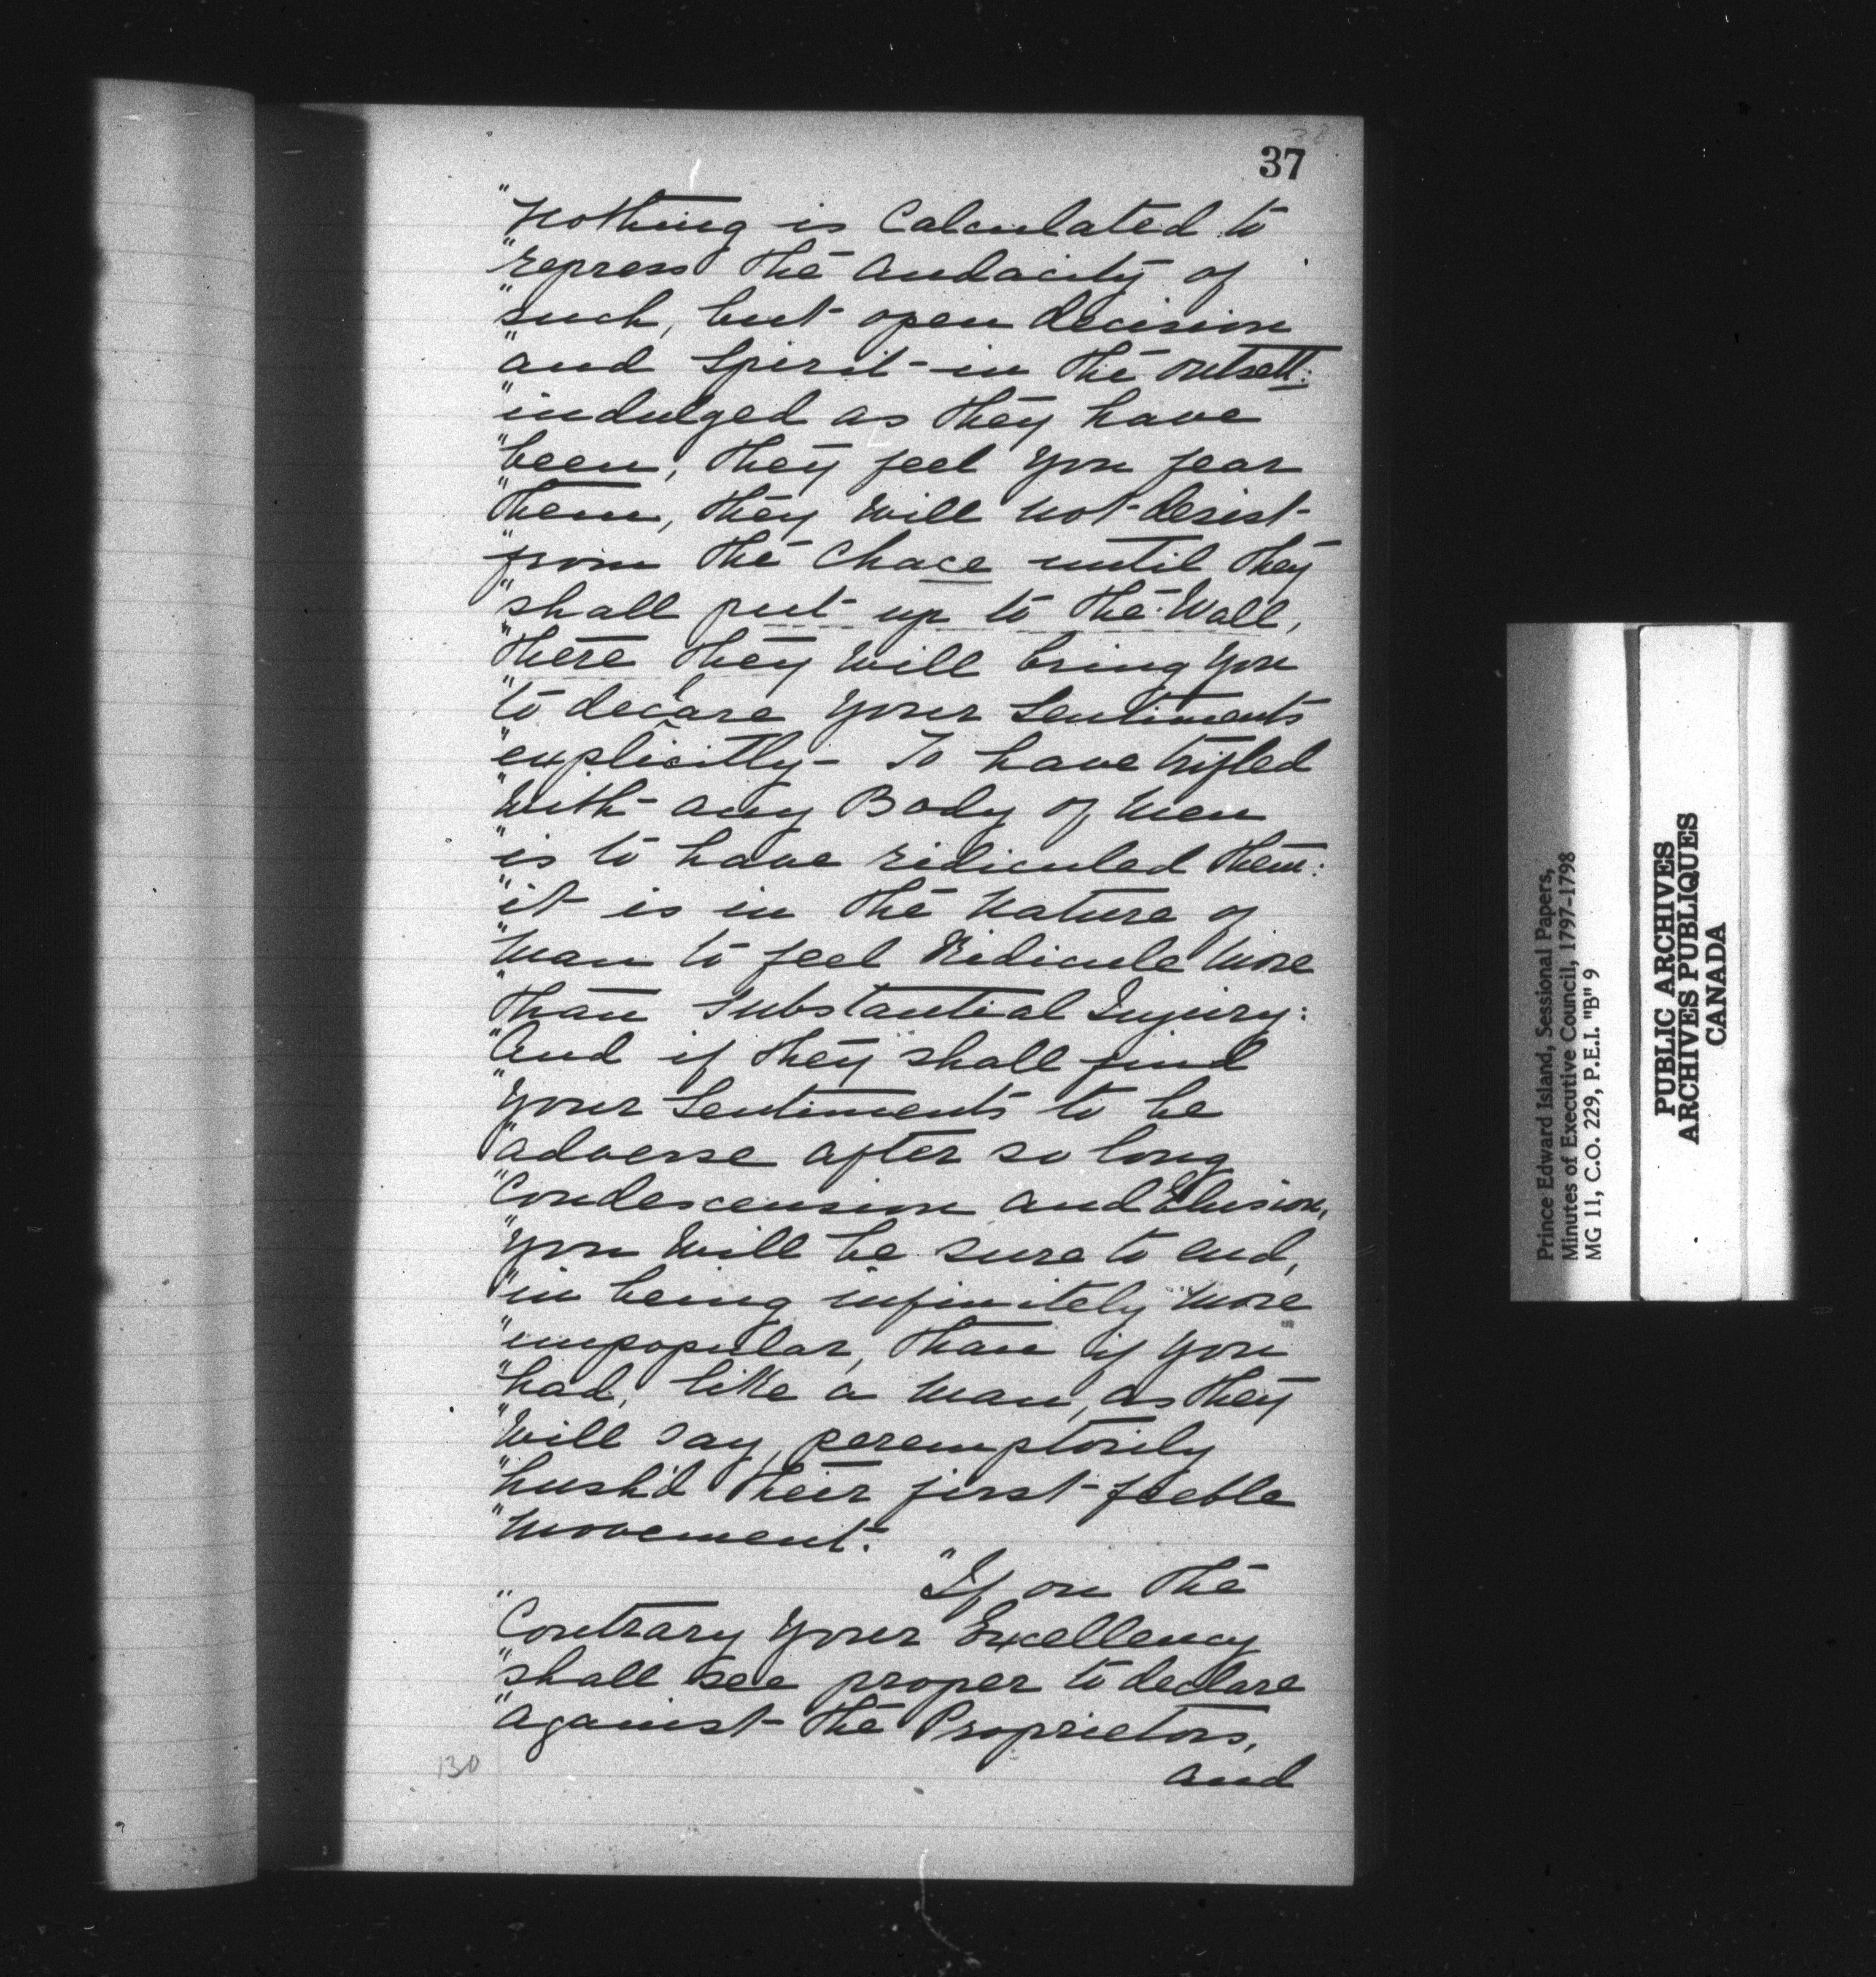 38
37
"Nothing is Calculated to
"repress the Audacity of
"such, but open decision
"and Spirit in the outsett:
"indulged as they have
"been, they feel you fear
"them, they will not desist
"from the Chace until they
"shall put up to the Wall,
"there they will bring you
"to declare your Sentiments
"explicitly – To have trifled
"with any Body of Men
"is to have ridiculed them:
"it is in the Nature of
"Man to feel Ridicule More
"than substantial Injury:
"And if they shall find
"your Sentiments to be
"adverse after so long
"Condescension and Elusion,
"you will be sure to end,
"in being infinitely more
"unpopular, than if you
"had, like a Man, as they
"will say, peremptorily
"hush'd their first feeble
"Movement:
"If on the
"Contrary your Excellency
"shall see proper to declare
"against the Proprietors,
and
130
Prince Edward Island, Sessional Papers,
Minutes of Executive Council, 1797-1798
MG 11, C.O. 229, P.E.I. "B" 9
PUBLIC ARCHIVES
ARCHIVES PUBLIQUES
CANADA